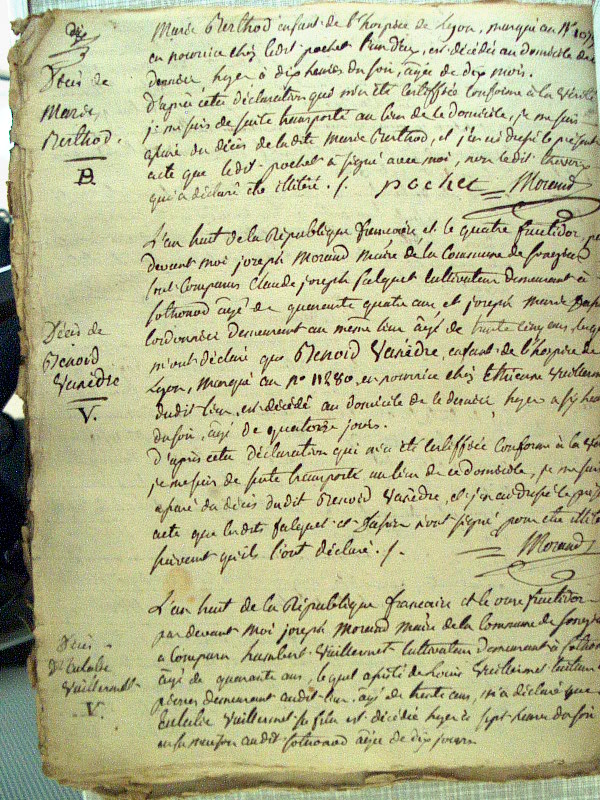 Décès de
Marie
Berthod.
B.
Marie Berthod enfant de l'hospice de Lyon, marqué au N°
en nourrice chez ledit pochet est décédée au domicile de
dernier hyer à dix heures du soir, âgée de dix mois.
D'après cette déclaration qui m'a été certiffiée conforme à la vérité
je me suis de suite transporté au lieu de ce domicile, je me suis
assuré du décès de ladite Marie Berthod, et j'en ai dressé le présent
acte que ledit pochet a signé avec moi, non ledit
qui a déclaré être illitéré ./.
pochet Morand
Décès de
Benoid
Vanédre
V.
L'an huit de la République françaire et le quatre fructidor
devant moi joseph Morand Maire de la Commune de
sont Comparus Claude joseph falquet Cultivateur demeurant à
Sothonod âgé de quarante quatre ans et joseph Marie
Cordonnier demeurant au même lieu âgé de trente cinq ans,
m'ont déclaré que Benoid Vanédre, enfant de l'hospice de
Lyon, Marqué au N° 11280, en nourrice chez Ethienne Vuillerme
dudit lieu, est décédé au domicile de ce dernier hyer à
du soir, âgé de quatorze jours.
D'après cette Déclaration qui m'a été Certiffiée Conforme à la
je me suis de suite transporté au lieu de ce domicile, je me suis
assuré du décès dudit Benoid Vanédre, et j'en ai dressé le
acte que lesdits falquet et n'ont signé pour être
suivant qu'ils l'ont déclaré ./.
Morand
Décès
d'Eulalie
Vuillermet
V.
L'an huit de la République françaire et le onze fructidor
par devant Moi joseph Morand Maire de la Commune de
a Comparu humbert Vuillermet Cultivateur demeurant à
âgé de quarante ans, lequel assisté de Louis Vuillermet
demeurant audit lieu, âgé de trente ans, m'a déclaré que
Eulalie Vuillermet sa fille est décédée hyer à sept heures du soir
en sa maison audit Sothonod âgée de dix jours